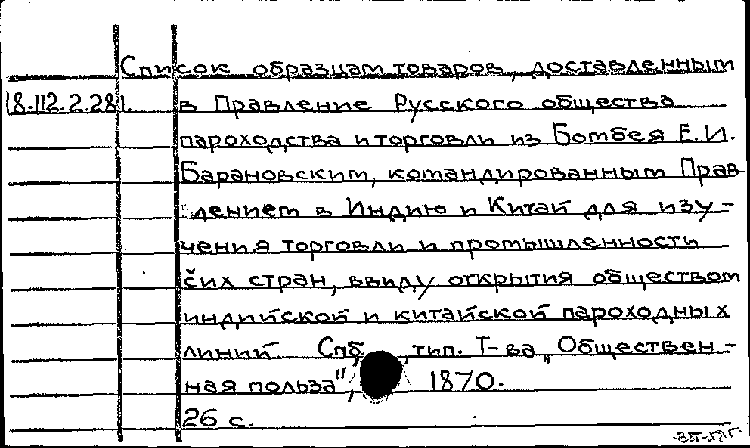 Список образцам товаров, доставленным
18.112.2.281. в Правление Русского общества
пароходства и торговли из Бомбея Е.И.
Барановским, командированным Прав
лением в Индию и Китай для изу-
чения торговли и промышленность
сих стран, ввиду открытия обществом
индийской и китайской пароходных
линий. Спб., тип. Т-ва „Обществен-
ная польза", 1870.
26 с.